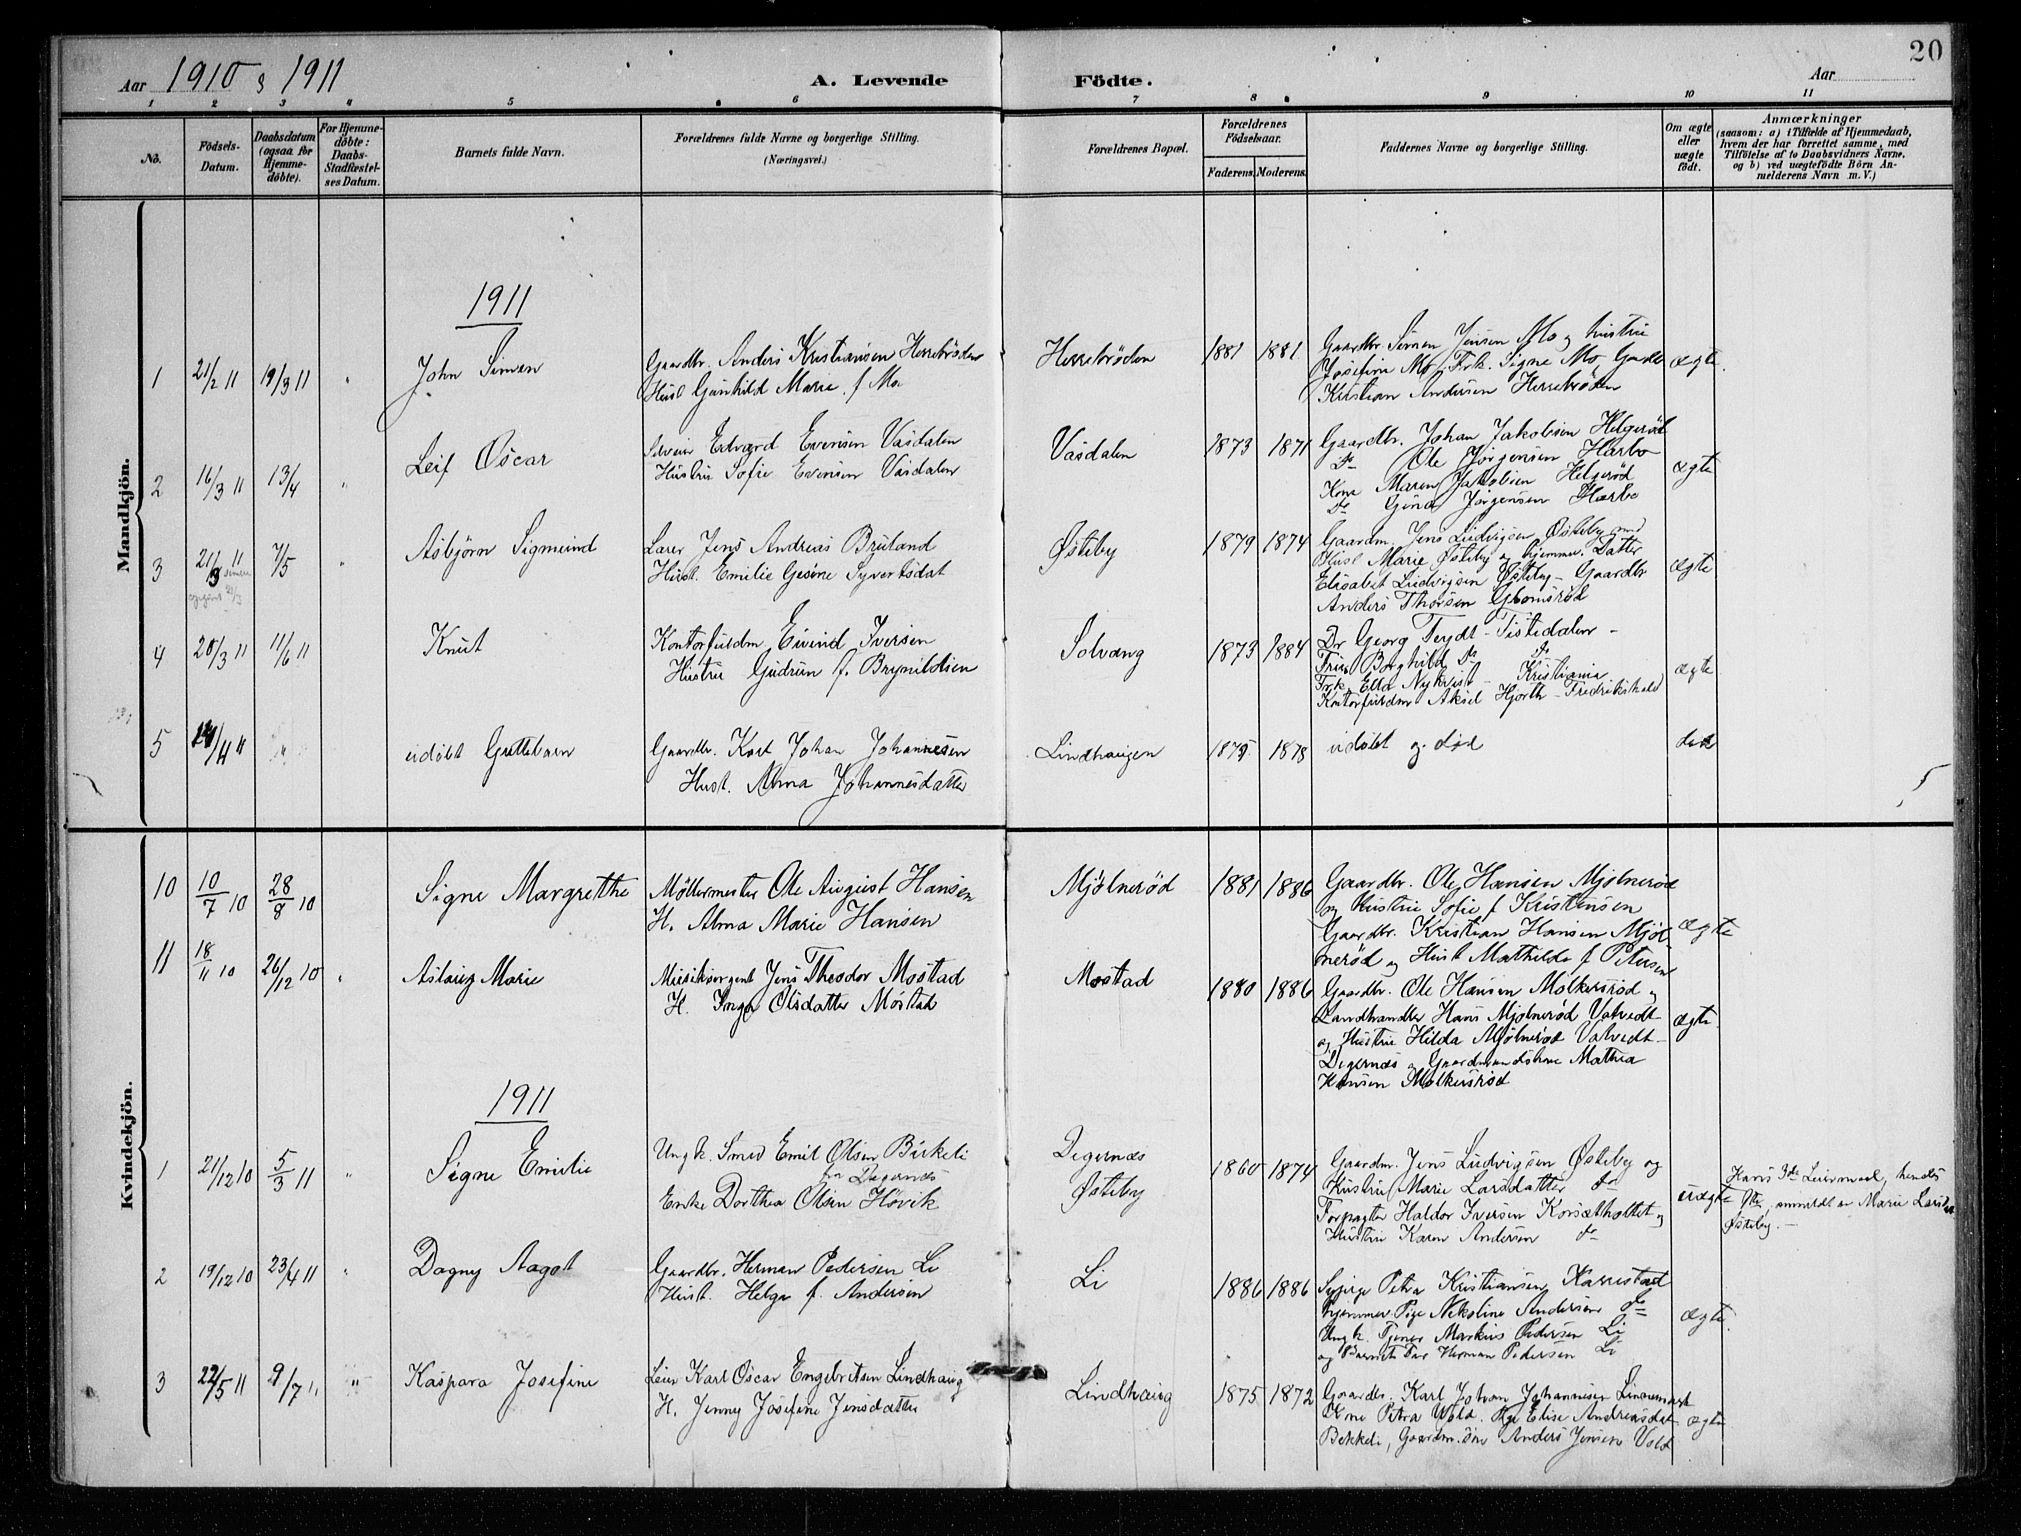 Aar 1910 & 1911
A. Levende Födte.
Aar
20
1 2 3 4 5 6 7 8 9 10 11
No.
Födsels-Datum.
Daabsdatum (ogsaa for Hjemme-döbte).
For Hjemme-döbte: Daabs-Stadfæstel-ses Datum.
Barnets fulde Navn.
Forældrenes fulde Navne og borgerlige Stilling.
(Næringsvei.)
Forældrenes Bopæl.
Forældrenes Födselsaar.
Faderens. Moderens.
Faddernes Navne og borgerlige Stilling.
Om ægte eller uægte födt.
Anmærkninger
(saasom: a) i Tilfælde af Hjemmedaab,
hvem der har forrettet samme, med
Tilföielse af to Daabsvidners Navne,
og b) ved uægtefödte Börn An-
melderens Navn m. V.)
Mandkjön.
1911
1 21/2 11 19/3 11 " John Simen
Gaardbr. Anders Kristiansen Herrebrøden
Hust Gunhild Marie f. Mo
Herrebrøden 1881 1881
Gaardbr. Simen Jensen Mo og hustru
Josefine Mo, Frk. Signe Mo Gaardbr
Kristian Andersen Herrebrøden
ægte.
2 16/3 11 13/4 " Leif Oscar
Edvard Evensen Vasdalen
Hustru Sofie Evensen Vasdalen
Vasdalen 1873 1871
Gaardbr. Johan Jakobsen Helgerød
Do Ole Jørgensen Harbo
Kone Maren Jakobsen Helgerød
Do Gina Jørgensen Harbo
ægte
3 21/3 11 7/5 " Asbjørn Sigmund
Lærer Jens Andreas Bruland
Hust. Emilie Gesine Syvertsdat
Østeby 1879 1874
Gaardm. Jens Ludvigsen Østeby med
Hust Marie Østeby og hjemmev. Datter
Elisabet Ludvigsen Østeby - Gaardbr
Anders Thorsen Glomsrød
ægte
4 20/3 11 11/6 11 Knut
Kontorfuldm Eivind Iversen
Hustru Gudrun f. Brynildsen
Solvang 1873 1884
Dr Georg Feydt - Tistedalen -
Frue Borghild Do Do
Frk. Ella Nykvist - Kristiania
Kontorfuldm Aksel Hjorth - Fredrikshald
ægte
5 14/4 11 " udøbt Guttebarn
Gaardbr. Karl Johan Johannesen
Hust. Alma Johannesdatter
Lindhaugen 1875 1878
udøbt og død
5
Kvindekjön.
10 10/7 10 28/8 10 Signe Margrethe
Møllermester Ole August Hansen
H. Alma Marie Hansen
Mjølnerød 1881 1886
Gaardbr. Ole Hansen Mjølnerød
og Hustru Sofie f Kristensen
Gaardbr. Kristian Hansen Mjøl
nerød og Hust Mathilde f Petersen
ægte
11 18/11 10 26/12 10 " Aslaug Marie
Musiksergent Jens Theodor Mostad
H. Inga Olsdatter Mostad
Mostad 1880 1886
Gaardbr. Ole Hansen Molkersrød og
Landhandler Hans Mjølnerød Vatvedt
og Hustru Hilda Mjølnerød Vatvedt -
Degernes og Gaardmandskone Mathea
Hansen Molkersrød
ægte
1911
1 21/12 10 5/3 11 " Signe Emilie
Ungk. Smed Emil Olsen Birkeli
fra Degernes
Enke Dorthea Olsen Høvik
Degernes
Østeby
1860 1874
Gaardm. Jens Ludvigsen Østeby og
Hustru Marie Larsdatter Do
Forpagter Haldor Iversen Korsæthottet og
Hustru Karen Andersen Do
uægte
Hans 3de Leiermaal, hendes
anmeldt av Marie
Østeby. -
2 19/12 10 23/4 11 " Dagny Aagot
Gaardbr. Herman Pedersen Li
Hust. Helga f. Andersen
Li 1886 1886
Sypige Petra Kristiansen Karrestad
hjemmev. Pige Nikoline Andersen Do
Ungk. Tjener Markus Pedersen Li
og Barnets Far Herman Pedersen Li
ægte.
3 22/5 11 9/7 11 " Kaspara Josefine
Karl Oscar Engebretsen Lindhaug
H. Jenny Josefine Jensdatter
Lindhaug 1875 1872
Gaardbr. Karl Johan Johannesen
Kone Petra Vold. Elise Andreasdat
Bekkeli, Gaardm. søn Anders Jensen Vold
ægte